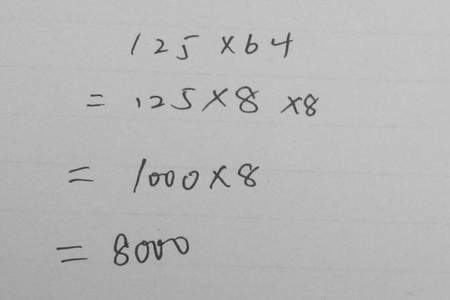 125 × 64
= 125 × 8 × 8
= 1000 × 8
= 8000